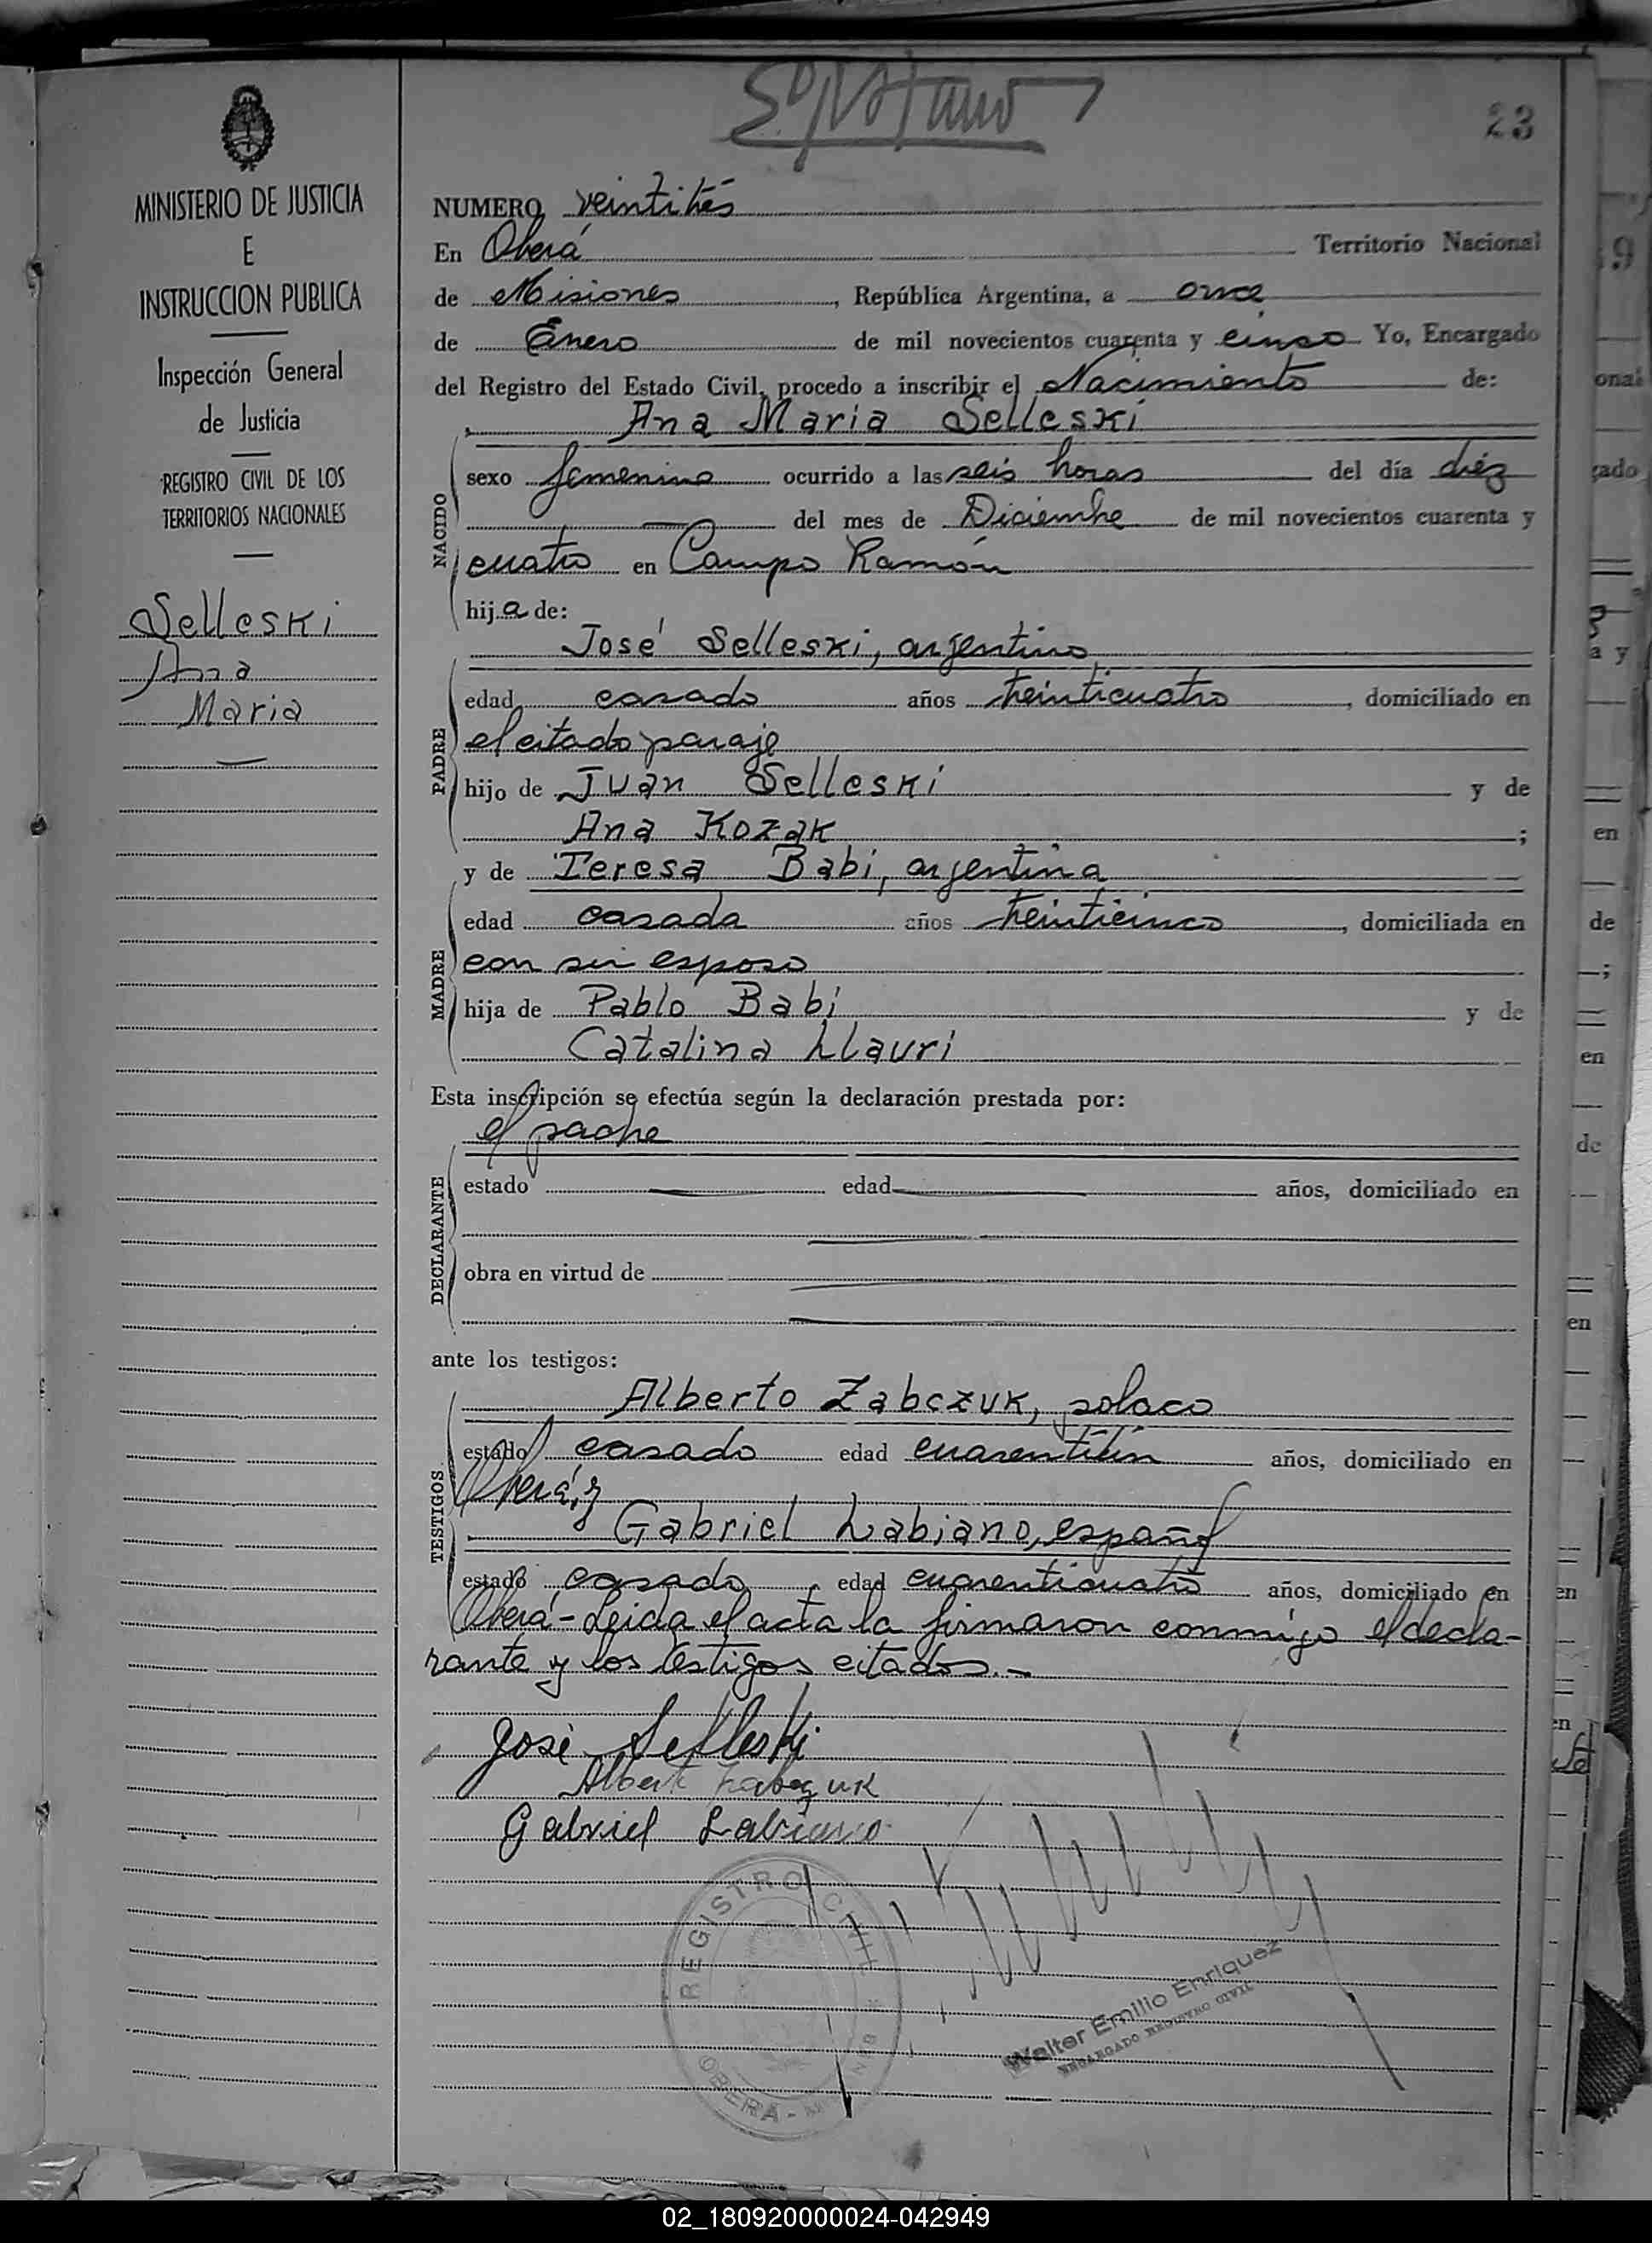 23
MINISTERIO DE JUSTICIA
E
INSTRUCCION PUBLICA
Inspección General
de Justicia
REGISTRO CIVIL DE LOS
TERRITORIOS NACIONALES
Selleski
Ana
Maria
NUMERO veintitrés
En Oberá Territorio Nacional
de Misiones, República Argentina, a once
de Enero de mil novecientos cuarenta y cinco Yo, Encargado
del Registro del Estado Civil, procedo a inscribir el Nacimiento de:
Ana Maria Selleski
NACIDO
sexo femenino ocurrido a las seis horas del día diéz
del mes de Diciembre de mil novecientos cuarenta y
cuatro en Campo Ramón
hija de:
José Selleski, argentino
PADRE
edad casado años treinticuatro, domiciliado en
el citado paraje
hijo de Juan Selleski y de
Ana Kozak;
y de Teresa Babi, argentina
MADRE
edad casada años treinticinco, domiciliada en
con su esposo
hija de Pablo Babi y de
Catalina Llauri
Esta inscripción se efectúa según la declaración prestada por:
el padre
DECLARANTE
estado edad años, domiciliado en
obra en virtud de
ante los testigos:
Alberto Zabczuk, polaco
TESTIGOS
estado casado edad cuarentiún años, domiciliado en
Oberá, y
Gabriel Labiano, español
estado casado, edad cuarenticuatro años, domiciliado en
Oberá - Leida el acta la firmaron conmigo el decla-
rante y los testigos citados.-
José Selleski
Albert Zabczuk
Gabriel Labiano
REGISTRO CIVIL
OBERÁ -
Walter Emilio Enriquez
ENCARGADO REGISTRO CIVIL
02_180920000024-042949